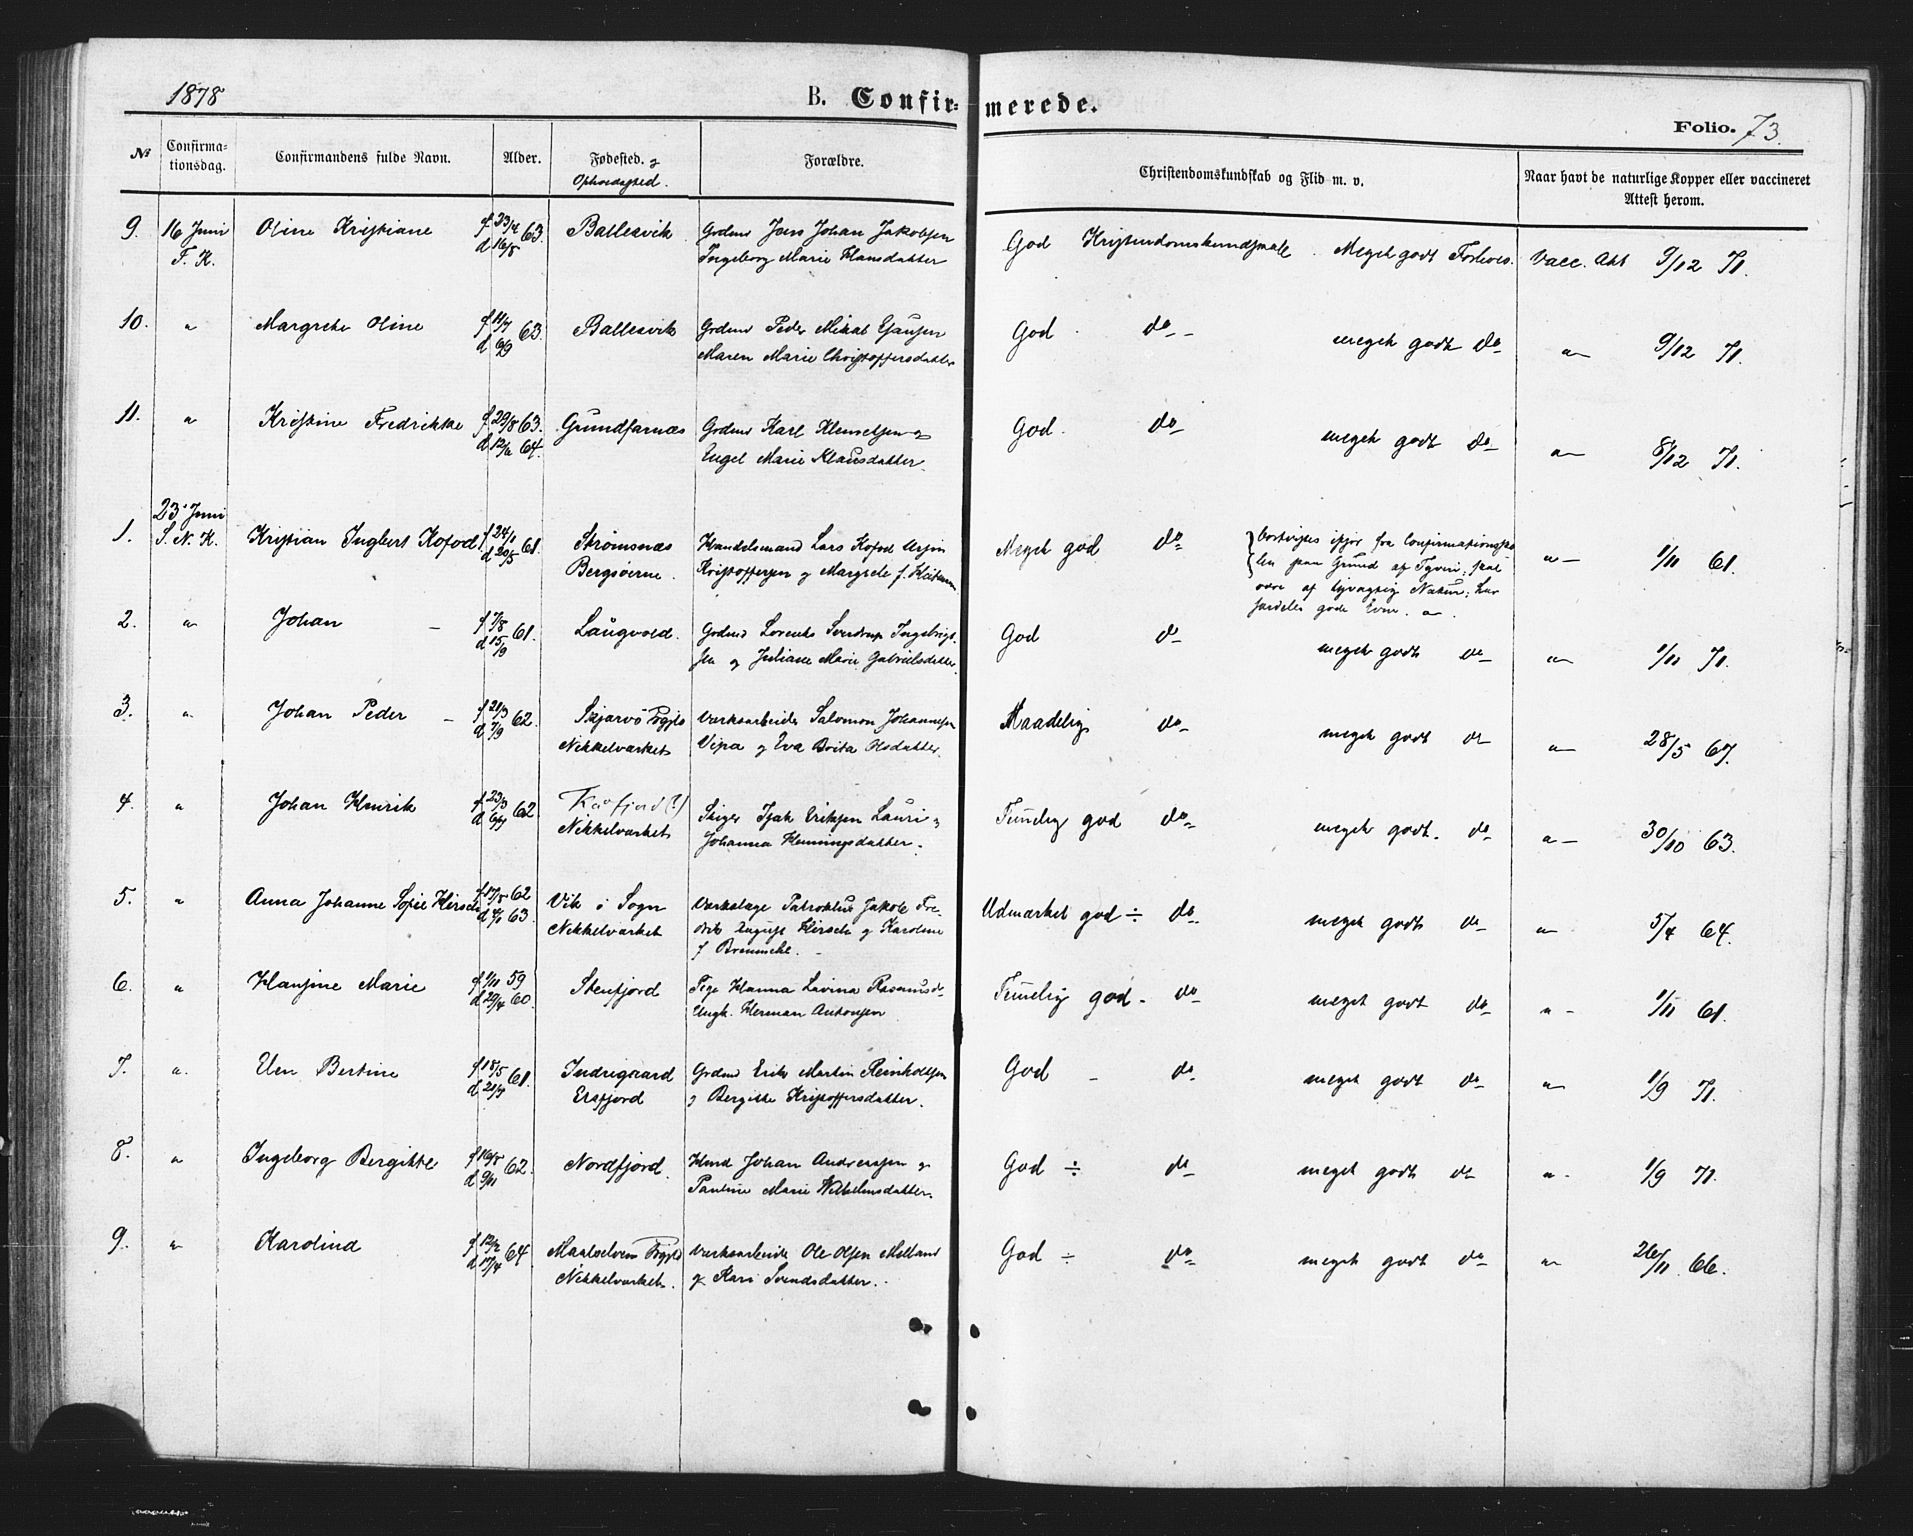 1878
B. Confir=
merede.
Folio. 73.
No
Confirma=
tionsdag.
Confirmandens fulde Navn.
Alder.
Fødested. og
Opholdssted.
Forældre.
Christendomskundskab og Flid m. v.
Naar havt de naturlige Kopper eller vaccineret
Attest herom.
9. 16 Juni Oline Kristiane f 23/4 63. Ballesvik Grdmd Jens Johan Jakobsen God Kristendomskundskab. Meget godt Forhold. Vacc. Att 9/12 71.
F. K. d 16/8 Ingeborg Marie Hansdatter
10. " Margrethe Oline f 11/7 63. Ballesvik Grdmd Peder Mikal Ejansen God do meget godt do " 9/12 71.
d 6/9 Maren Marie Christoffersdatter
11. " Kristine Fredrikke f 29/8 63. Gundfarnæs Grdmd Karl Klemetsen og God do meget godt do " 8/12 71.
d 12/6 64. Engel Marie Klausdatter
23 Juni
1. S. N. K. Kristian Ingbert Kofoed f 24/1 61. Strømsnæs Handelsmand Lars Kofod Meget god do bortvistes ifjor fra Confirmationssko- " 1/11 61.
d 20/5 Bergsøerne. Kristoffersen og Margrete f. len paa Grund af Tyveri; skal
være af tyvagtig Natur; har
særdeles gode Evner.
2. " Johan f 7/8 61. Laugvold. Grdmd Lorents Sverdrup Ingebrigt- God do meget godt do " 1/11 71.
d 15/9 sen og Juliane Marie Gabrielsdatter
3. " Johan Peder f 21/3 62. Skjærvø Pgjld Værksarbeider Salomon Johannesen Maadelig do meget godt do " 28/5 67.
d 7/9 Nikkelværket Vipa og Eva Brita Olsdatter.
4. " Johan Henrik f 23/3 62. Kaafjord (?) Isak Eriksen Lauri og Temelig god do meget godt do " 30/10 63.
d 6/7 Nikkelværket Johanna Henningsdatter.
5. " Anna Johanne Sofie Hirsch f 17/8 62 Vik i Sogn Værkslæge Patroklus Jakob Fre- Udmærket god ÷ do meget godt do " 5/4 64.
d 4/1 63. Nikkelværket drik August Hirsch og Karoline
f
6. " Hansine Marie f 1/11 59 Stenfjord Pige Hanna Lavina Rasmusd. Temelig god do meget godt do " 1/11 61.
d 29/4 60. Ungk. Herman Antonsen
7. " Elen Bertine f 18/5 61. Indregaard Grdmd Erik Martin Reinholtsen God do meget godt do " 1/9 71.
d 21/7 Ersfjord og Bergitte Kristoffersdatter.
8. " Ingeborg Bergitte f 16/8 62. Nordfjord. Hmd Johan Andreassen og God ÷ do meget godt do " 1/9 71.
d 9/11 Pauline Marie Vilhelmsdatter.
9. " Karolind f 12/2 64. Maalselven Pgjld Værksarbeider Ole Olsen Melland God ÷ do meget godt do " 26/11 66.
d 17/4 Nikkelværket. og Kari Svendsdatter.